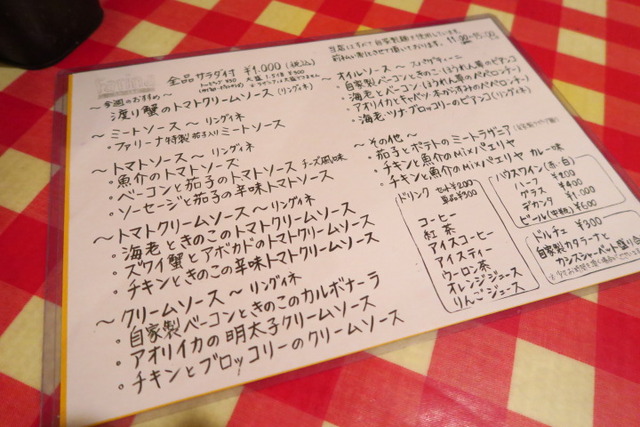 全品 サラダ付 ¥1,000(税込)
～今週のおすすめ～
・渡り蟹のトマトクリームソース(リングイネ)
～ミートソース～リングイネ
・ファリーナ特製茄子入りミートソース
～トマトソース～リングイネ
・魚介のトマトソース
・ベーコンと茄子のトマトソース チーズ風味
・ソーセージと茄子の辛味トマトソース
～トマトクリームソース～リングイネ
・海老ときのこのトマトクリームソース
・ズワイ蟹とアボカドのトマトクリームソース
・チキンときのこの辛味トマトソース
～クリームソース～リングイネ
・自家製ベーコンときのこのカルボナーラ
・アオリイカの明太子クリームソース
・チキンとブロッコリーのクリームソース
豆腐はすべて自家製麺を使用しています。
～オイルソース～スパゲティーニ
・自家製ベーコンときのこ、ほうれん草のビアンコ
・海老とベーコン、ほうれん草のペペロンチーノ
・アオリイカとキャベツ、水がらすみのペペロンチーノ
・海老、ツナ、ブロッコリーのビアンコ(リングイネ)
～その他～
・茄子とポテトのミートラザニア
・チキンと魚介のMixパエリヤ
・チキンと魚介のMixパエリヤ カレー味
ドリンク セット¥200
単品¥300
コーヒー
紅茶
アイスコーヒー
アイスティー
ウーロン茶
オレンジジュース
りんごジュース
ハウスワイン(赤・白)
ハーフ ¥200
グラス ¥400
デカンタ ¥1,000
ビール(中瓶) ¥600
ドルチェ ¥300
自家製カタラーナと
カシスシャーベット盛り合